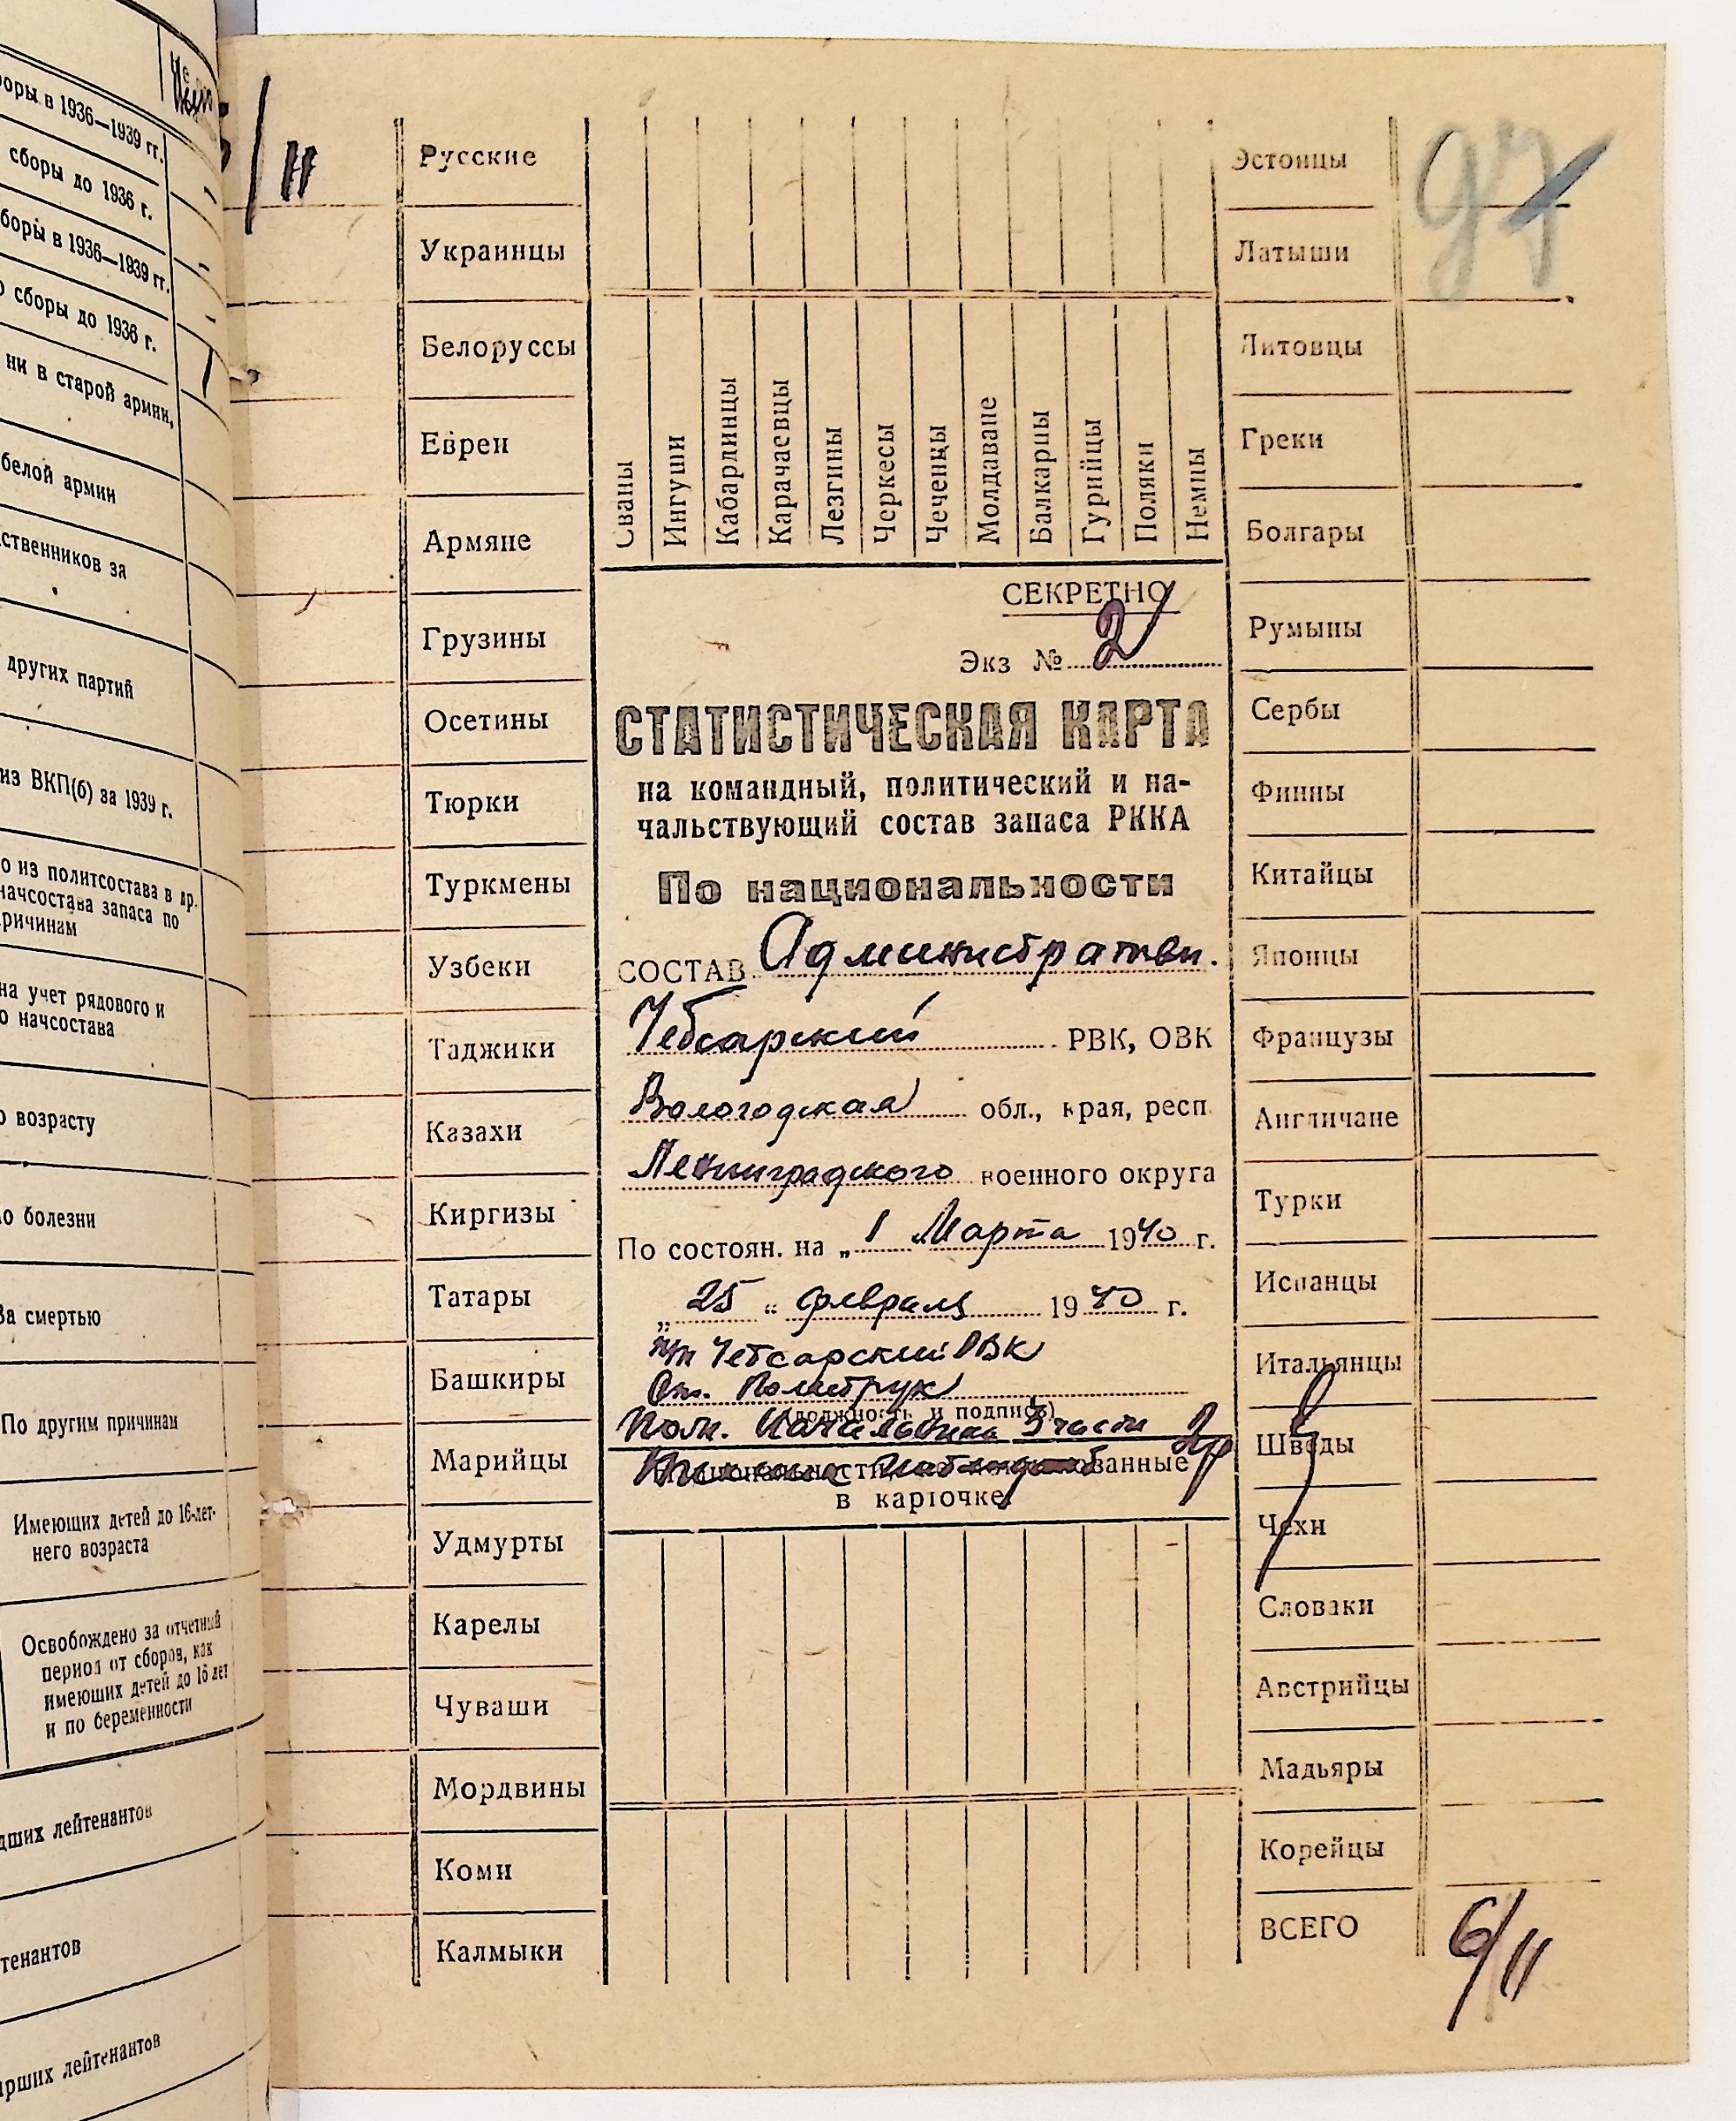 оры в 1936—1939 гг.
сборы до 1936 г.
боры в 1936—1939 гг.
сборы до 1936 г.
ни в старой армии,
белой армии
ственников за
других партий
из ВКП(б) за 1939 г.
о из политсостава в др.
начсостава запаса по
ричинам
на учет рядового и
о начсостава
о возрасту
о болезни
За смертью
По другим причинам
Имеющих детей до 16-лет-
него возраста
Освобождено за отчетный
период от сборов, как
имеющих детей до 16 лет
и по беременности
дших лейтенантов
тенантов
арших лейтенантов
/11
Русские
Украинцы
Белоруссы
Евреи
Армяне
Грузины
Осетины
Тюрки
Туркмены
Узбеки
Таджики
Казахи
Киргизы
Татары
Башкиры
Марийцы
Удмурты
Карелы
Чуваши
Мордвины
Коми
Калмыки
Сваны
Ингуши
Кабардинцы
Карачаевцы
Лезгины
Черкесы
Чеченцы
Молдаване
Балкарцы
Гурийцы
Поляки
Немцы
СЕКРЕТНО
Экз № 2
СТАТИСТИЧЕСКАЯ КАРТА
на командный, политический и на-
чальствующий состав запаса РККА
По национальности
СОСТАВ Административн.
Чебсарский РВК, ОВК
Вологодская обл., края, респ.
Ленинградского военного округа
По состоян. на „1 Марта 1940 г.
„25“ февраля 1940 г.
п/п Чебсарский РВК
Политрук
(должность и подпись)
Пом. Начальника 3 части
в карточке
Эстонцы
Латыши
Литовцы
Греки
Болгары
Румыны
Сербы
Финны
Китайцы
Японцы
Французы
Англичане
Турки
Испанцы
Итальянцы
Шведы
Чехи
Словаки
Австрийцы
Мадьяры
Корейцы
ВСЕГО 6/11
97